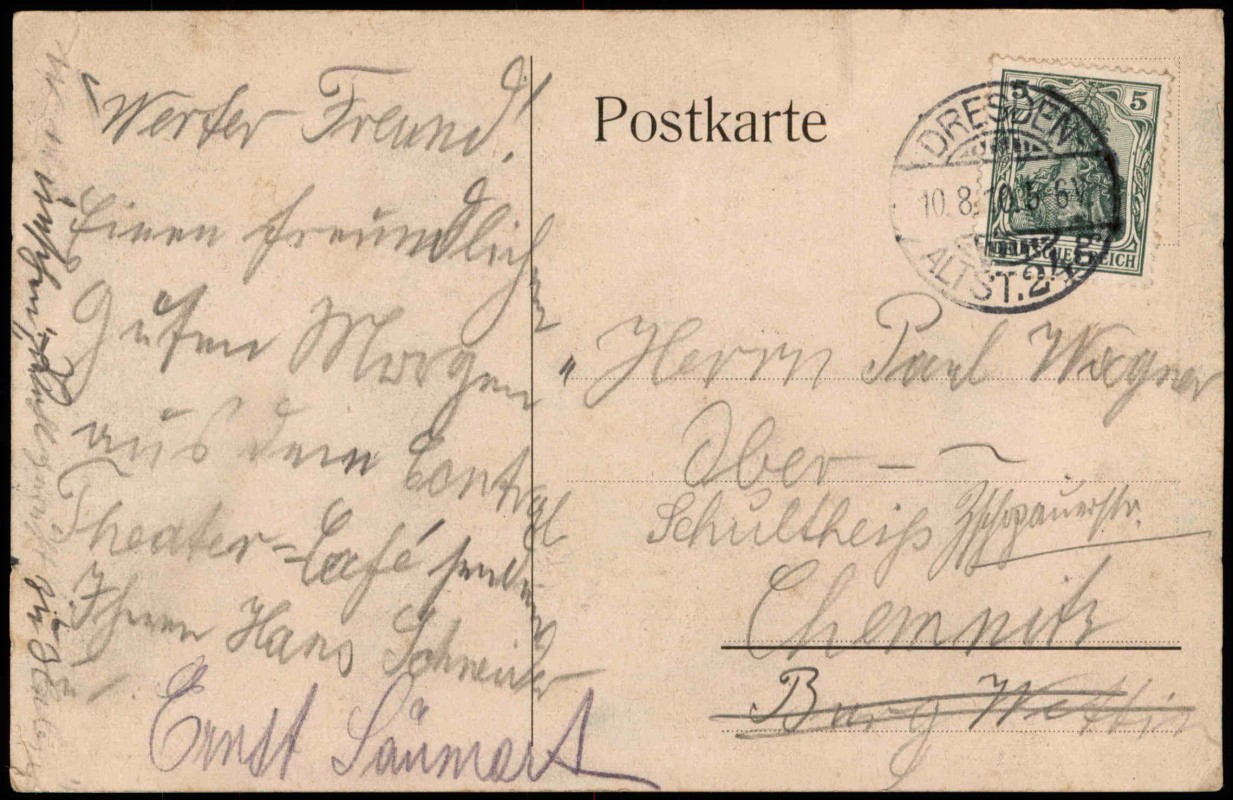 Werter Freund!
Einen freundlichen
Guten Morgen
aus dem Central
Theater-Café sendend
Ihnen Hans Schneider
Ernst
Postkarte
5 5
DEUTSCHES REICH
DRESDEN
10.8.10. 6
ALTST. 24
Herrn Paul Wagner
Ober-
Schultheiß Zschopauerstr.
Chemnitz
Burg Wettin